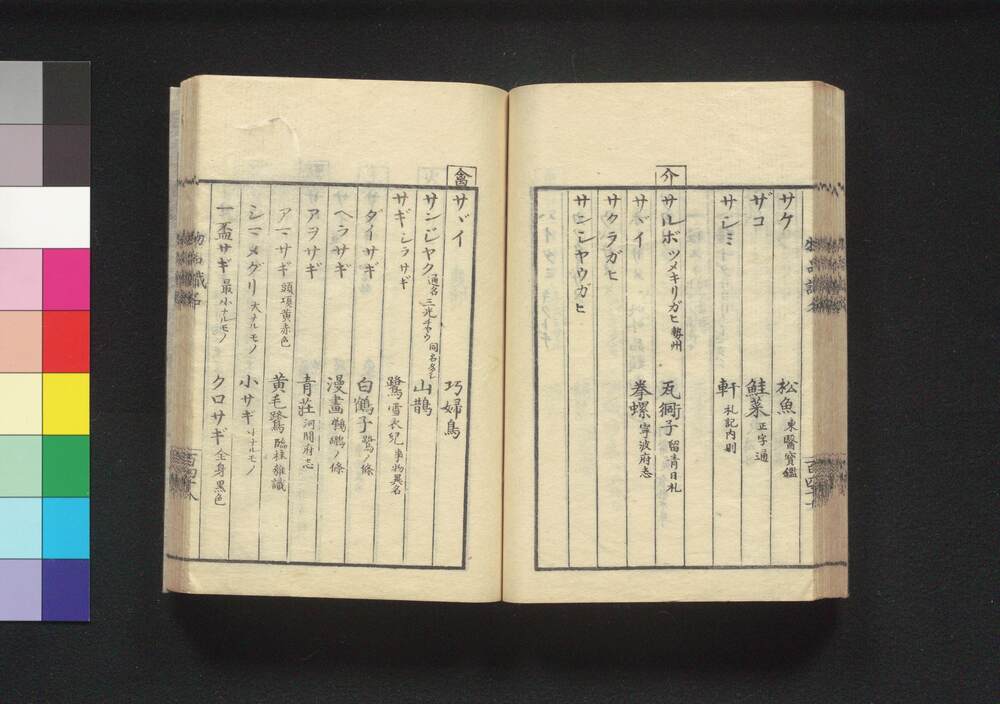 サケ 松魚 東醫寳鑑
ザコ 鮭菜 正字通
サシミ 軒 礼記内則
介
サルボ ツメキリガヒ 勢州 瓦衕子 留青日札
サバイ 拳螺 寧波府志
サクラガヒ
サンシヤウガヒ
禽
サヾイ 巧婦鳥
サンジヤク 通名 三光チヤウ 同名多シ 山鵲
サギ シラサギ 鷺 雪衣兒 事物異名
ダイサギ 白鶴子 鷺ノ條
ヘラサギ 漫畫 鵜鶘ノ條
アヲサギ 青荘 河間府志
アマサギ 頭項黄赤色 黄毛鷺 臨桂雜識
シマメグリ 大ナルモノ 小サギ 小ナルモノ
一盃サギ 最小ナルモノ クロサギ 全身黒色
物品識名